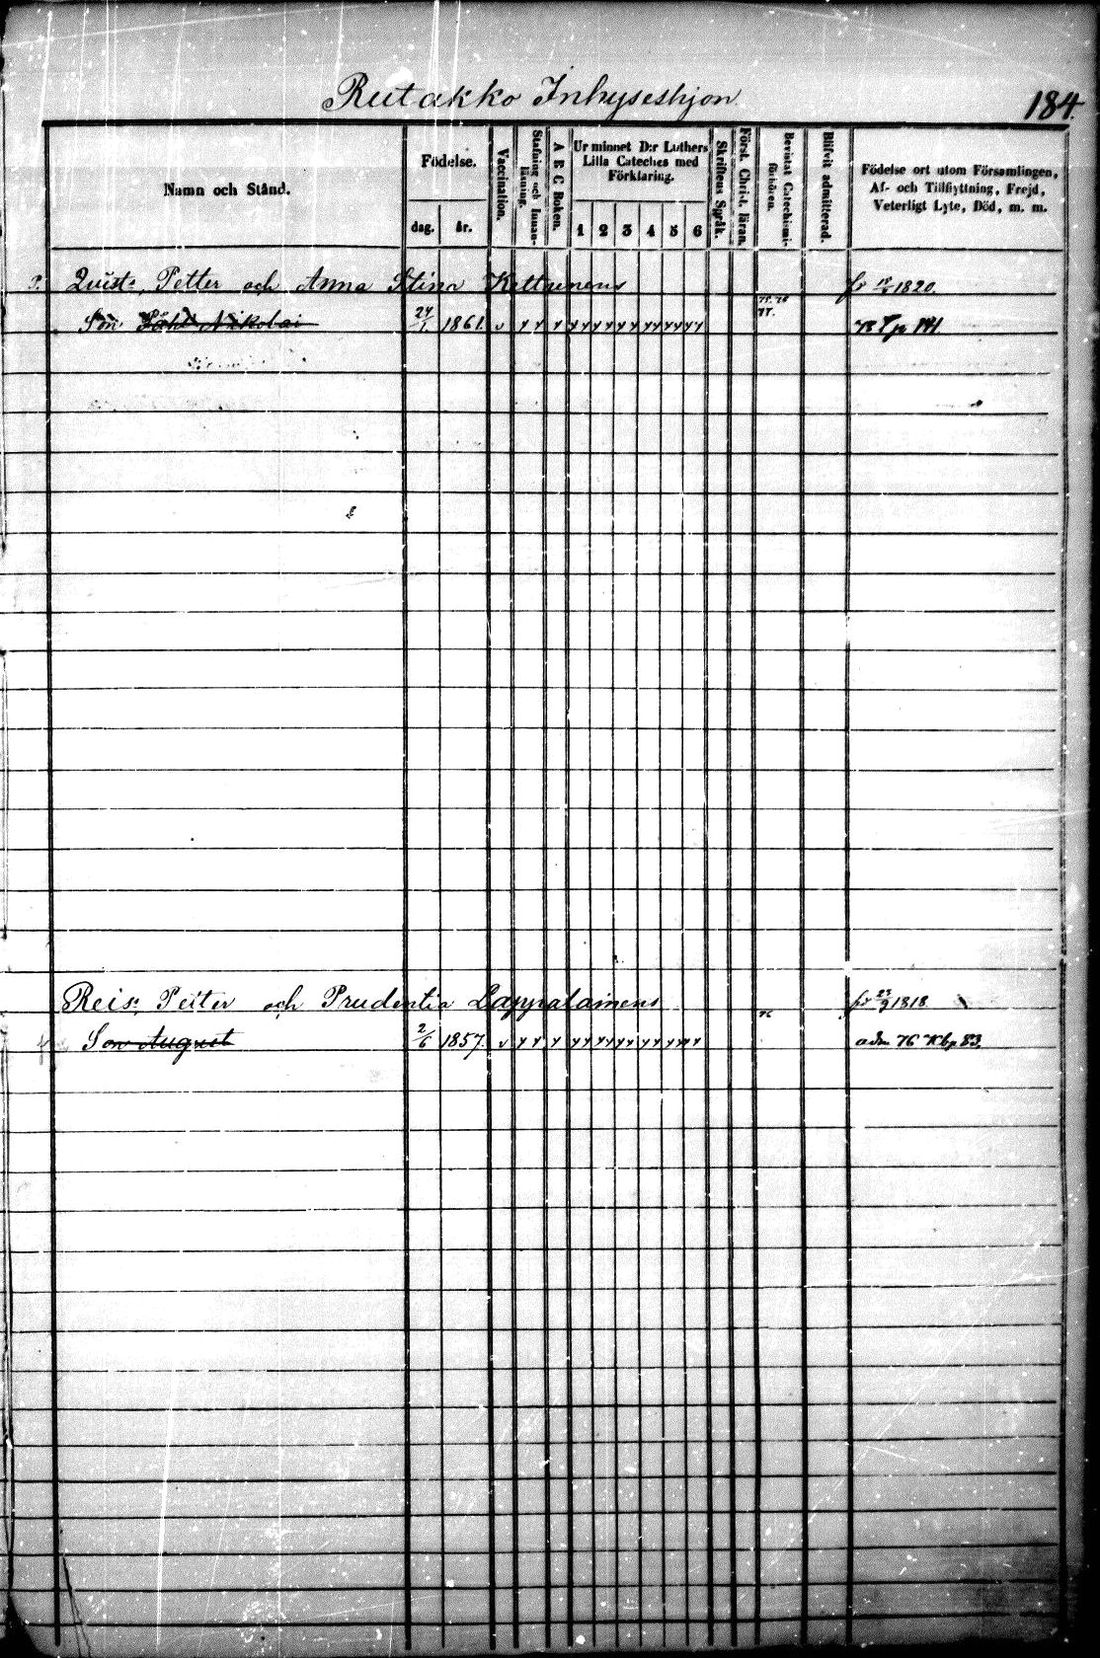 Rutakko Inhyseshjon
184.
Namn och Stånd.
Födelse.
dag.
år.
Vaccination.
Stafning och Innanläsning.
A B C Boken.
Ur minnet D:r Luthers
Lilla Cateches med
Förklaring.
1 2 3 4 5 6
Skriftens Språk.
Först. Christ. läran.
Bevistat Catechismiförhören.
Blifvit admitterad.
Födelse ort utom Församlingen,
Af- och Tillflyttning, Frejd,
Veterligt Lyte, Död, m. m.
Petter och Anna Stina Kettunens 1820.
Son Nikolai 24/1 1861. v
Reis: Petter och Prudentia Lappalainens 23/9 1818
Son August 2/6 1857. v 76 adm 76 Kbp 83